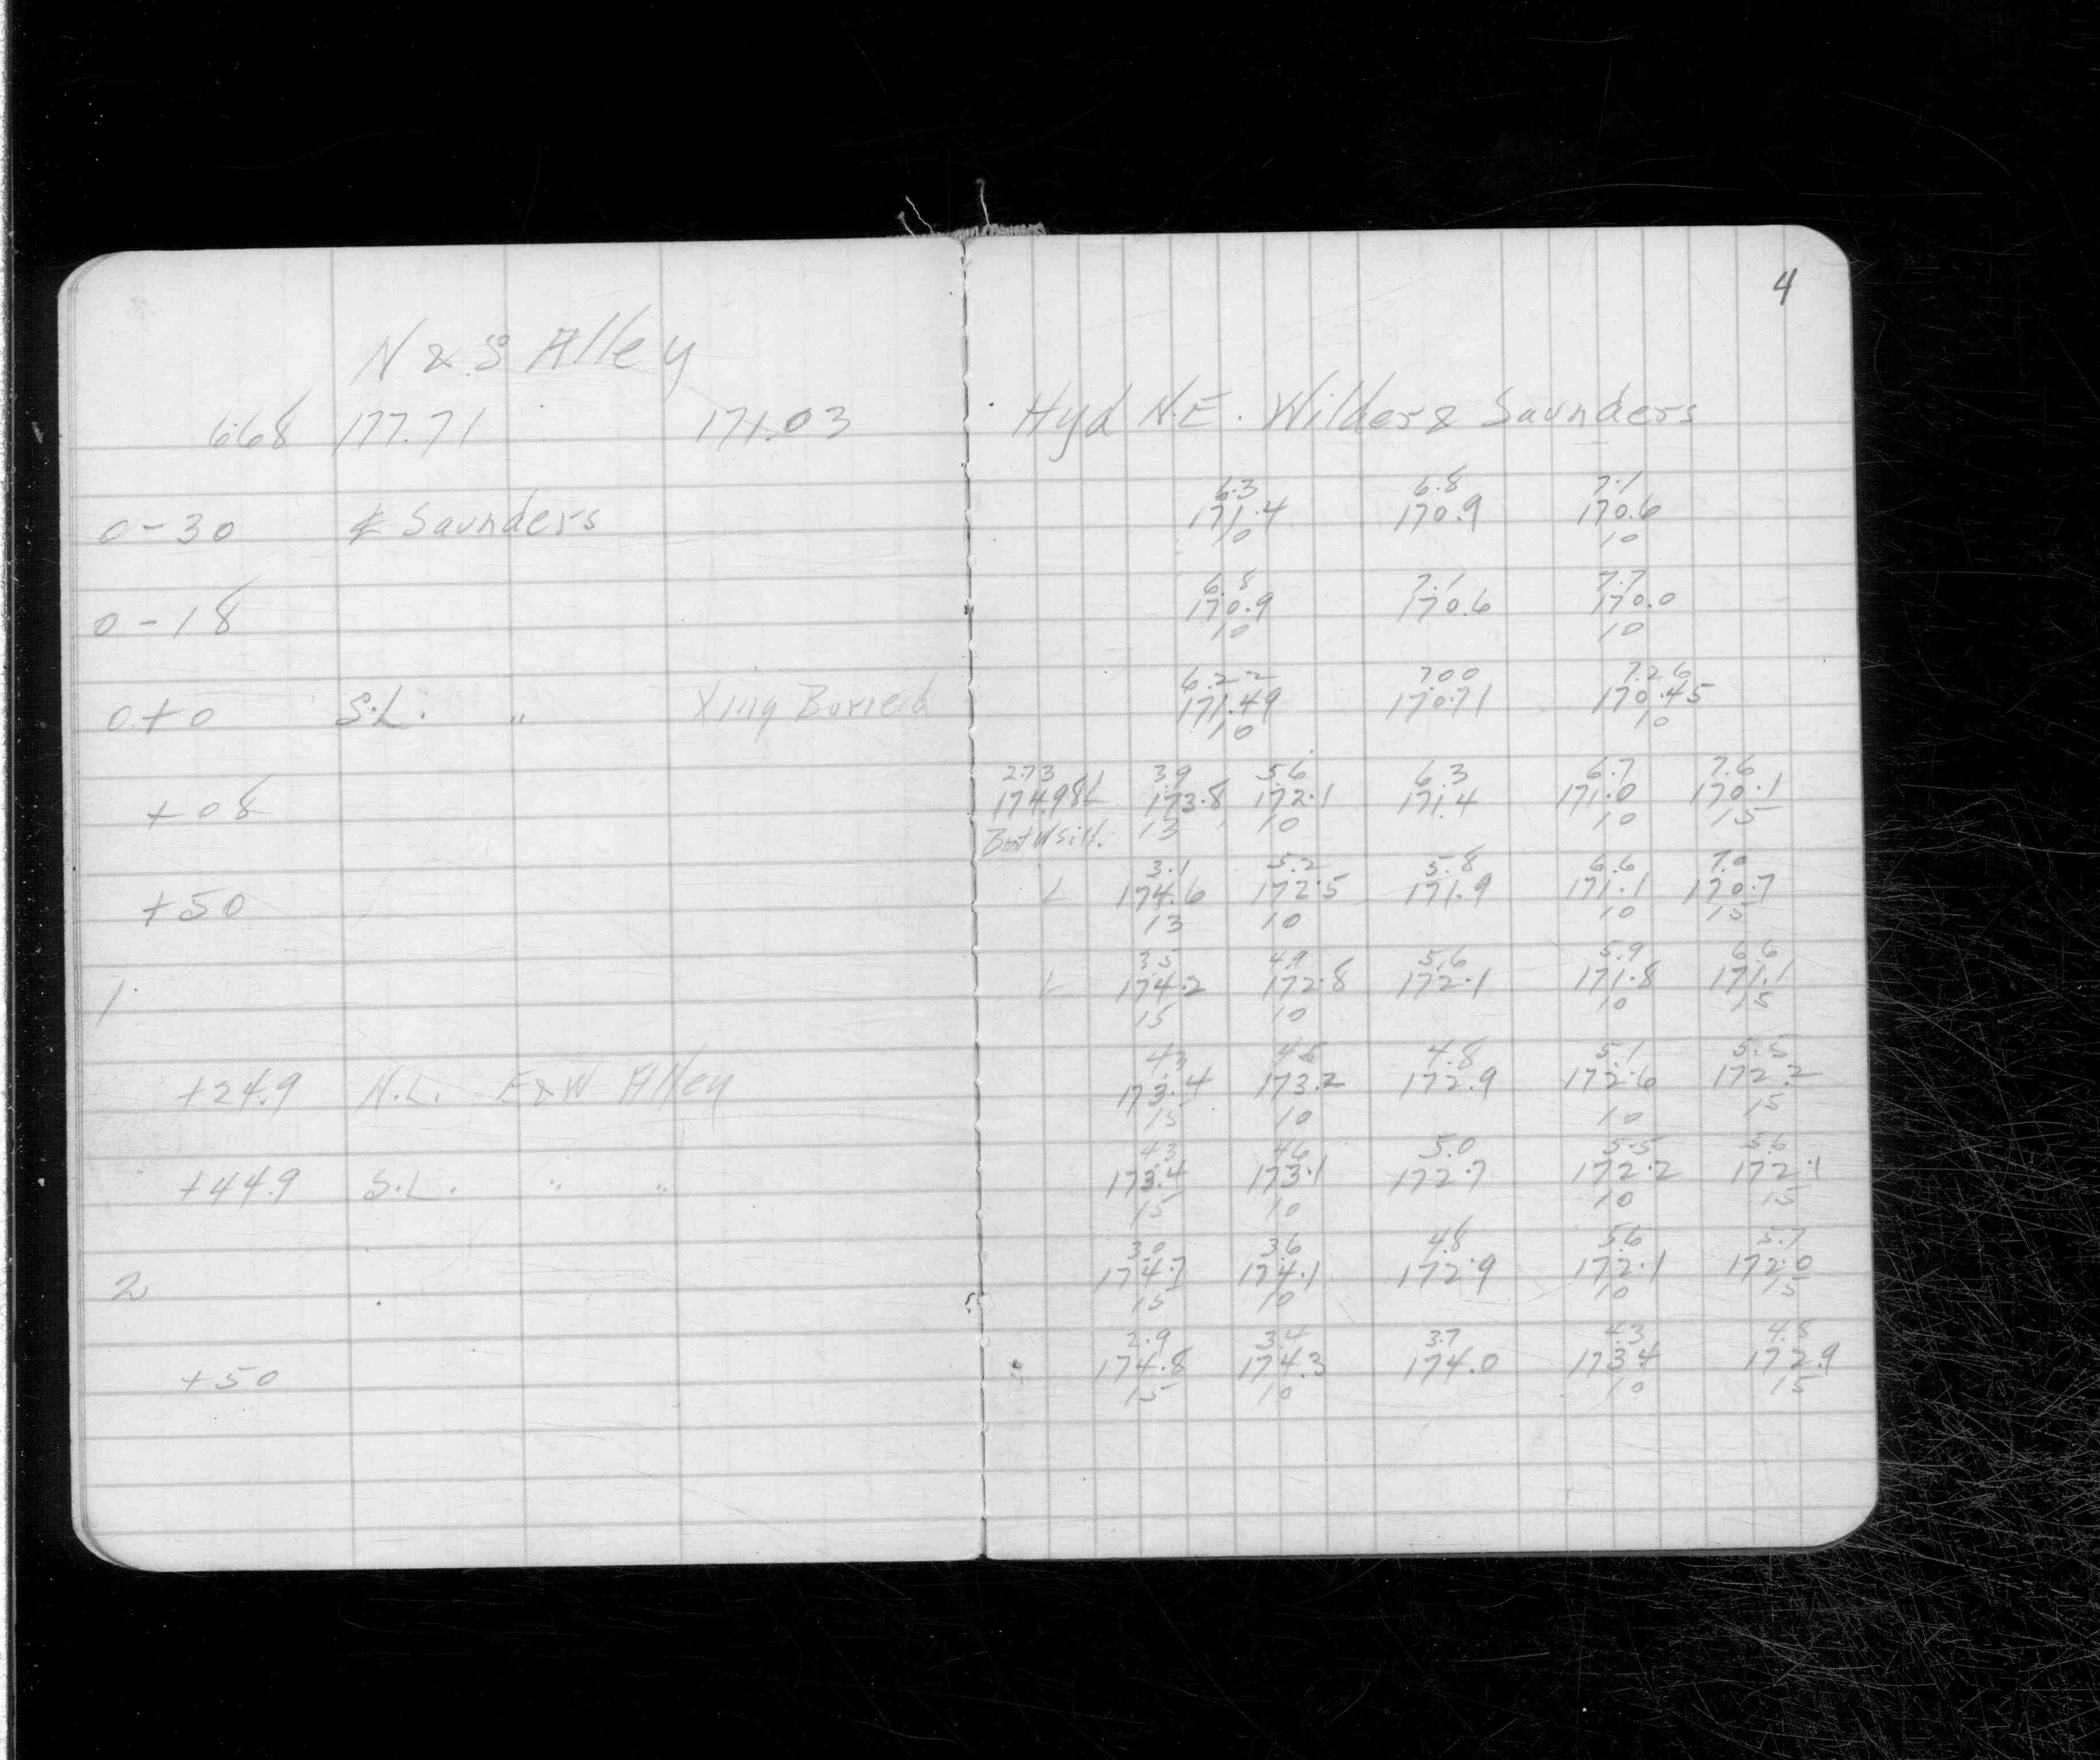 4
N & S Alley
6.68 177.71 171.03 Hyd N.E. Wilder & Saunders
6.3 6.8 7.1
0-30 ℄ Saunders 171.4 170.9 170.6
10 10
6.8 7.1 7.7
0-18 170.9 170.6 170.0
10 10
6.22 7.00 7.26
0+0 S.L. " Xing Buried 171.49 170.71 170.45
10 10
2.73 3.9 5.6 6.3 6.7 7.6
+08 174.98 L 173.8 172.1 171.4 171.0 170.1
13 10 10 15
3.1 5.2 5.8 6.6 7.0
+50 L 174.6 172.5 171.9 171.1 170.7
13 10 10 15
3.5 4.9 5.6 5.9 6.6
1 L 174.2 172.8 172.1 171.8 171.1
15 10 10 15
4.3 4.5 4.8 5.1 5.5
+24.9 N.L. E & W Alley 173.4 173.2 172.9 172.6 172.2
15 10 10 15
4.3 4.6 5.0 5.5 5.6
+44.9 S.L. " " 173.4 173.1 172.7 172.2 172.1
15 10 10 15
3.0 3.6 4.8 5.6 5.7
2 174.7 174.1 172.9 172.1 172.0
15 10 10 15
2.9 3.4 3.7 4.3 4.8
+50 174.8 174.3 174.0 173.4 172.9
15 10 10 15